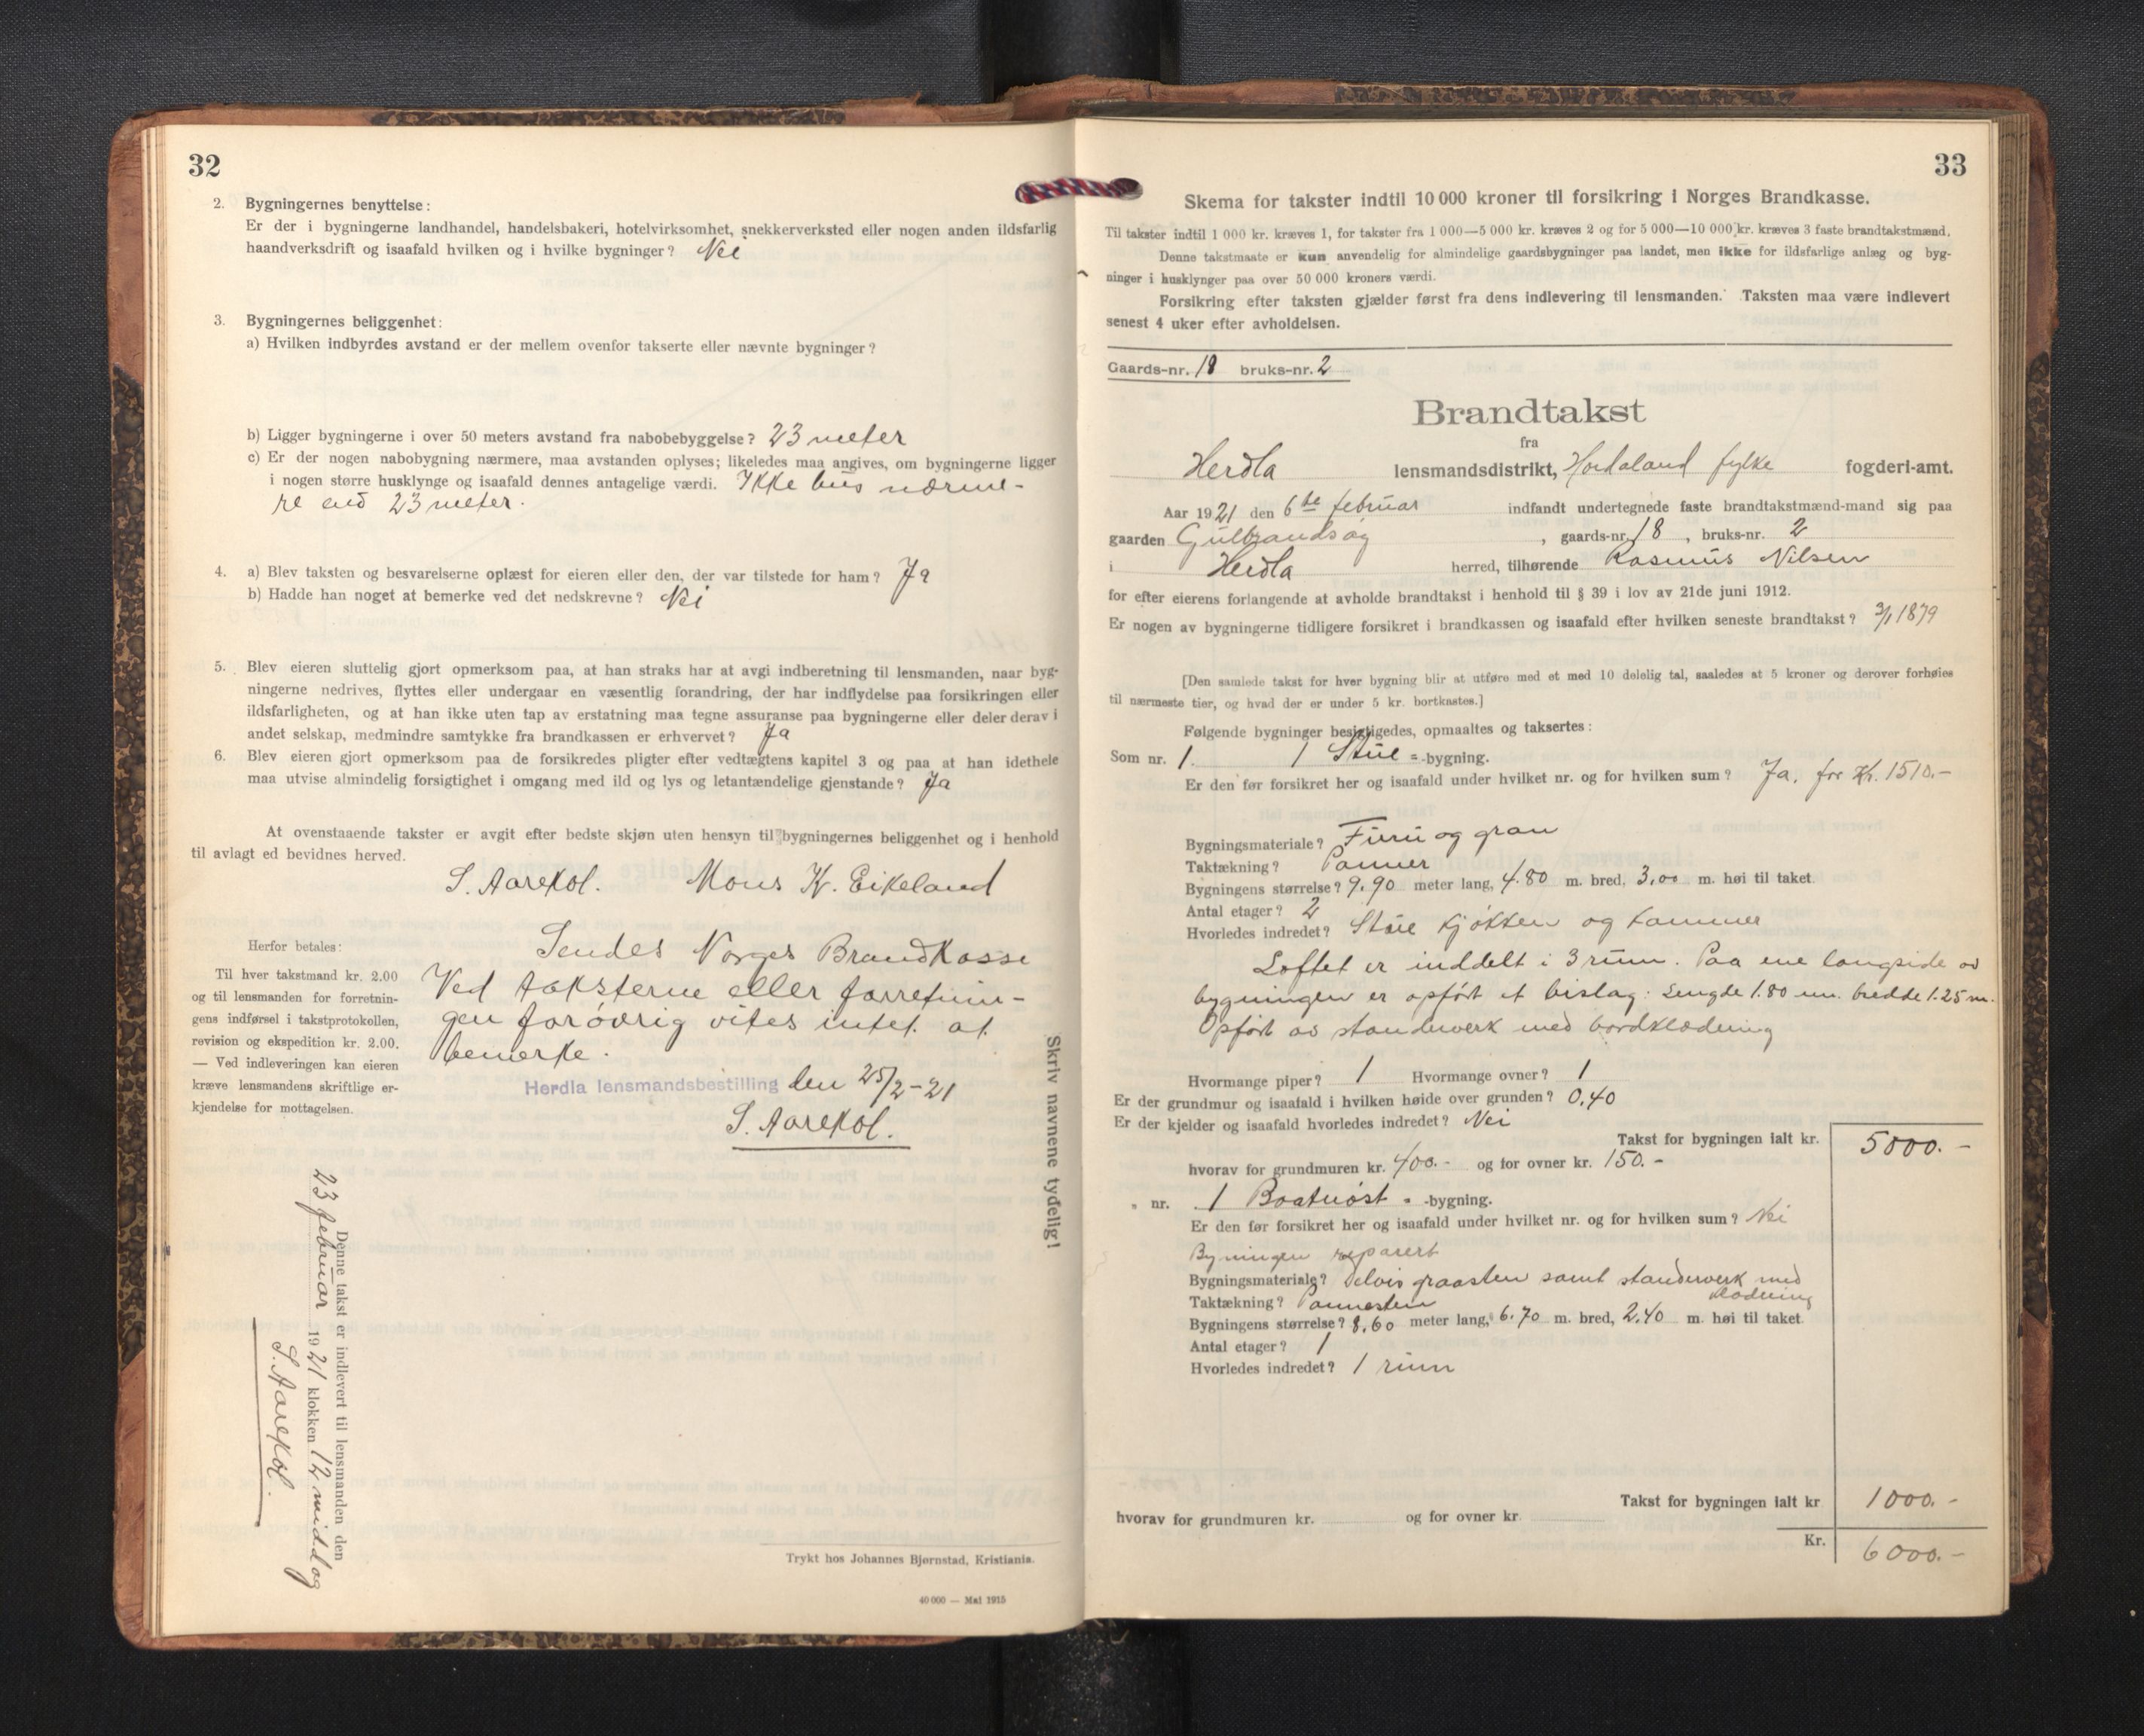 32
2. Bygningernes benyttelse:
Er der i bygningerne landhandel, handelsbakeri, hotelvirksomhet, snekkerverksted eller nogen anden ildsfarlig
haandverksdrift og isaafald hvilken og i hvilke bygninger? Nei
3. Bygningernes beliggenhet:
a) Hvilken indbyrdes avstand er der mellem ovenfor takserte eller nævnte bygninger?
b) Ligger bygningerne i over 50 meters avstand fra nabobebyggelse? 23 meter
c) Er der nogen nabobygning nærmere, maa avstanden oplyses; likeledes maa angives, om bygningerne ligger
i nogen større husklynge og isaafald dennes antagelige værdi. Ikke hus nærme-
re end 23 meter.
4. a) Blev taksten og besvarelserne oplæst for eieren eller den, der var tilstede for ham? Ja
b) Hadde han noget at bemerke ved det nedskrevne? Nei
5. Blev eieren sluttelig gjort opmerksom paa, at han straks har at avgi indberetning til lensmanden, naar byg-
ningerne nedrives, flyttes eller undergaar en væsentlig forandring, der har indflydelse paa forsikringen eller
ildsfarligheten, og at han ikke uten tap av erstatning maa tegne assuranse paa bygningerne eller deler derav i
andet selskap, medmindre samtykke fra brandkassen er erhvervet? Ja
6. Blev eieren gjort opmerksom paa de forsikredes pligter efter vedtægtens kapitel 3 og paa at han idethele
maa utvise almindelig forsigtighet i omgang med ild og lys og letantændelige gjenstande? Ja
At ovenstaaende takster er avgit efter bedste skjøn uten hensyn til bygningernes beliggenhet og i henhold
til avlagt ed bevidnes herved.
S. Aarekol. Mons K. Eikeland
Herfor betales:
Til hver takstmand kr. 2.00
og til lensmanden for forretnin-
gens indførsel i takstprotokollen,
revision og ekspedition kr. 2.00.
— Ved indleveringen kan eieren
kræve lensmandens skriftlige er-
kjendelse for mottagelsen.
Sendes Norges Brandkasse
Ved taksterne eller forretnin-
gen forøvrig vites intet at
bemerke.
Herdla lensmandsbestilling den 25/2-21
S. Aarekol.
Skriv navnene tydelig!
Denne takst er indlevert til lensmanden den
23 februar 1921 klokken 12 middag
S. Aarekol.
Trykt hos Johannes Bjørnstad, Kristiania.
40 000 — Mai 1915
33
Skema for takster indtil 10 000 kroner til forsikring i Norges Brandkasse.
Til takster indtil 1 000 kr. kræves 1, for takster fra 1 000—5 000 kr. kræves 2 og for 5 000—10 000 kr. kræves 3 faste brandtakstmænd.
Denne takstmaate er kun anvendelig for almindelige gaardsbygninger paa landet, men ikke for ildsfarlige anlæg og byg-
ninger i husklynger paa over 50 000 kroners værdi.
Forsikring efter taksten gjælder først fra dens indlevering til lensmanden. Taksten maa være indlevert
senest 4 uker efter avholdelsen.
Gaards-nr. 18 bruks-nr. 2
Brandtakst
fra
Herdla lensmandsdistrikt, Hordaland fylke fogderi-amt.
Aar 1921 den 6te februar indfandt undertegnede faste brandtakstmænd-mand sig paa
gaarden Gulbrandsøy, gaards-nr. 18, bruks-nr. 2
i Herdla herred, tilhørende Rasmus Nilsen
for efter eierens forlangende at avholde brandtakst i henhold til § 39 i lov av 21de juni 1912.
Er nogen av bygningerne tidligere forsikret i brandkassen og isaafald efter hvilken seneste brandtakst? 3/1 1879
[Den samlede takst for hver bygning blir at utføre med et med 10 delelig tal, saaledes at 5 kroner og derover forhøies
til nærmeste tier, og hvad der er under 5 kr. bortkastes.]
Følgende bygninger besigtigedes, opmaaltes og taksertes:
Som nr. 1. 1 Stue =-bygning.
Er den før forsikret her og isaafald under hvilket nr. og for hvilken sum? Ja, for Kr. 1510.-
Bygningsmateriale? Furu og gran
Taktækning? Panner
Bygningens størrelse? 9.90 meter lang, 4.80 m. bred, 3,00 m. høi til taket.
Antal etager? 2
Hvorledes indredet? Stue kjøkken og kammer
Loftet er inddelt i 3 rum. Paa ene langside av
bygningen er opført et bislag: Lengde 1.80 m. bredde 1.25 m.
Opført av standerverk med bordklædning
Hvormange piper? 1 Hvormange ovner? 1
Er der grundmur og isaafald i hvilken høide over grunden? 0,40
Er der kjelder og isaafald hvorledes indredet? Nei
Takst for bygningen ialt kr. 5000.-
hvorav for grundmuren kr. 400.- og for ovner kr. 150.-
" nr. 1 Baatnøst =-bygning.
Er den før forsikret her og isaafald under hvilket nr. og for hvilken sum? Nei
Bygningen reparert
Bygningsmateriale? Delvis graasten samt standerverk med
klædning
Taktækning? Pannesten
Bygningens størrelse? 8,60 meter lang, 6.70 m. bred, 2,40 m. høi til taket.
Antal etager? 1
Hvorledes indredet? 1 rum
Takst for bygningen ialt kr. 1000.-
hvorav for grundmuren kr. og for ovner kr.
Kr. 6000.-